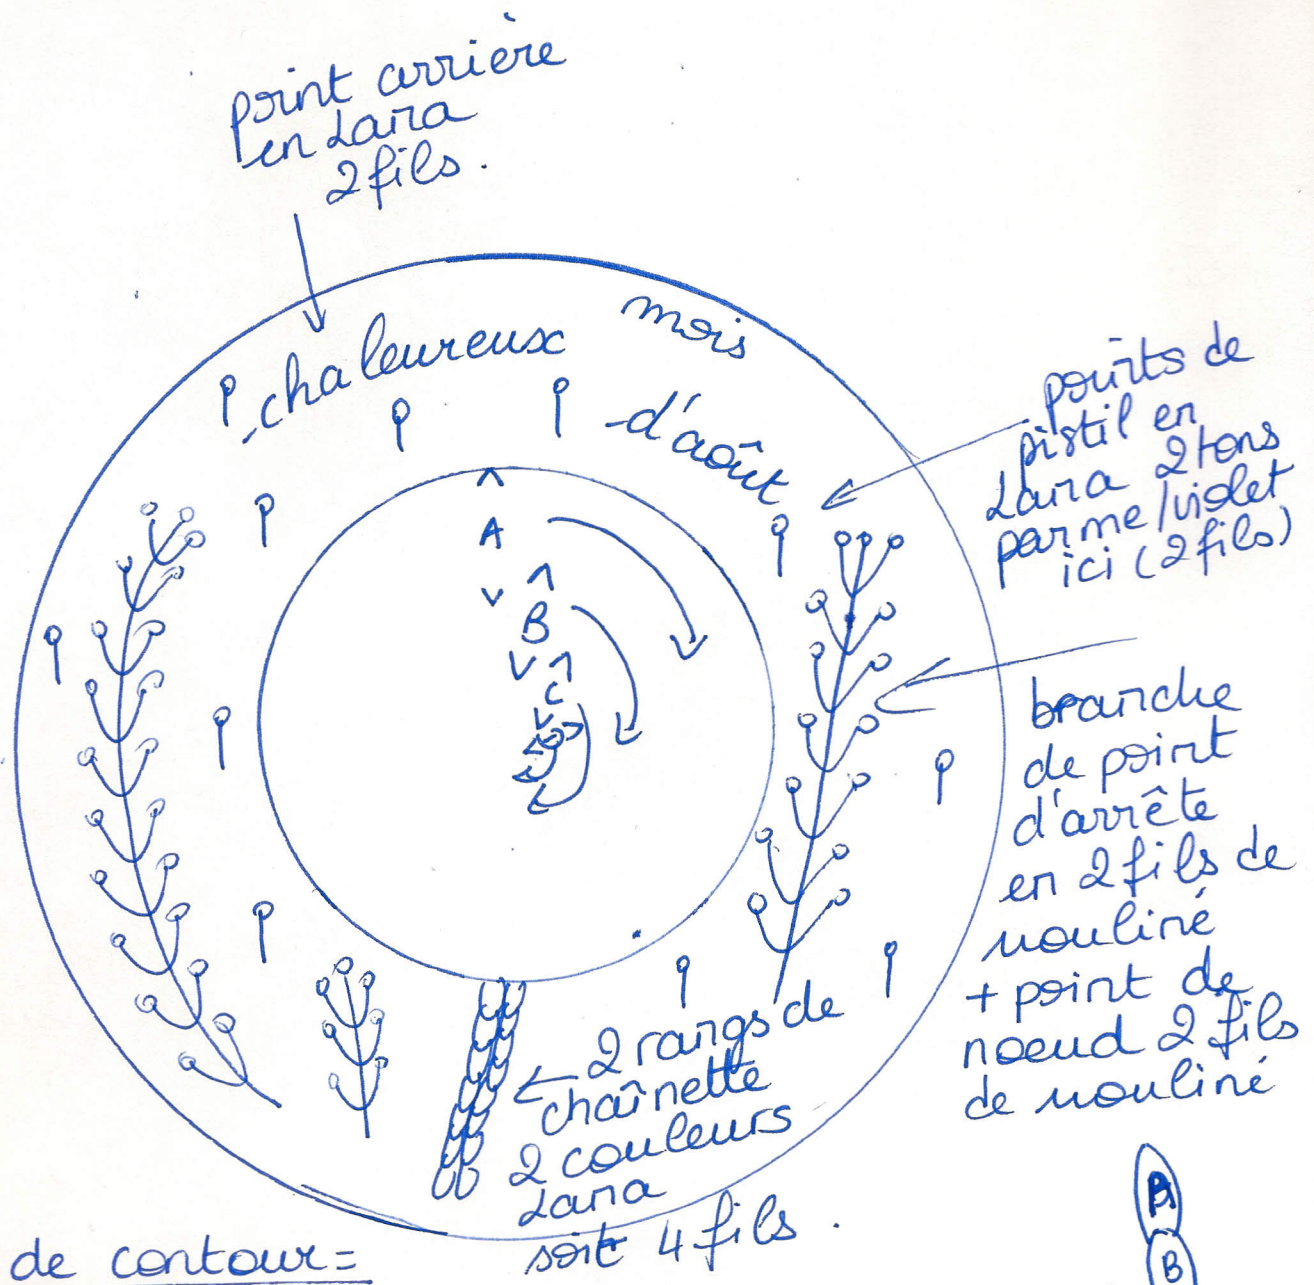 point arrière
en Lana
2 fils.
chaleureux mois
d'août
points de
pistil en
Lana 2 tons
parme/violet
ici (2 fils)
A
B
C
branche
de point
d'arrête
en 2 fils de
mouliné
+ point de
noeud 2 fils
de mouliné
2 rangs de
chaînette
2 couleurs
Lana
soit 4 fils.
de contour =
A
B